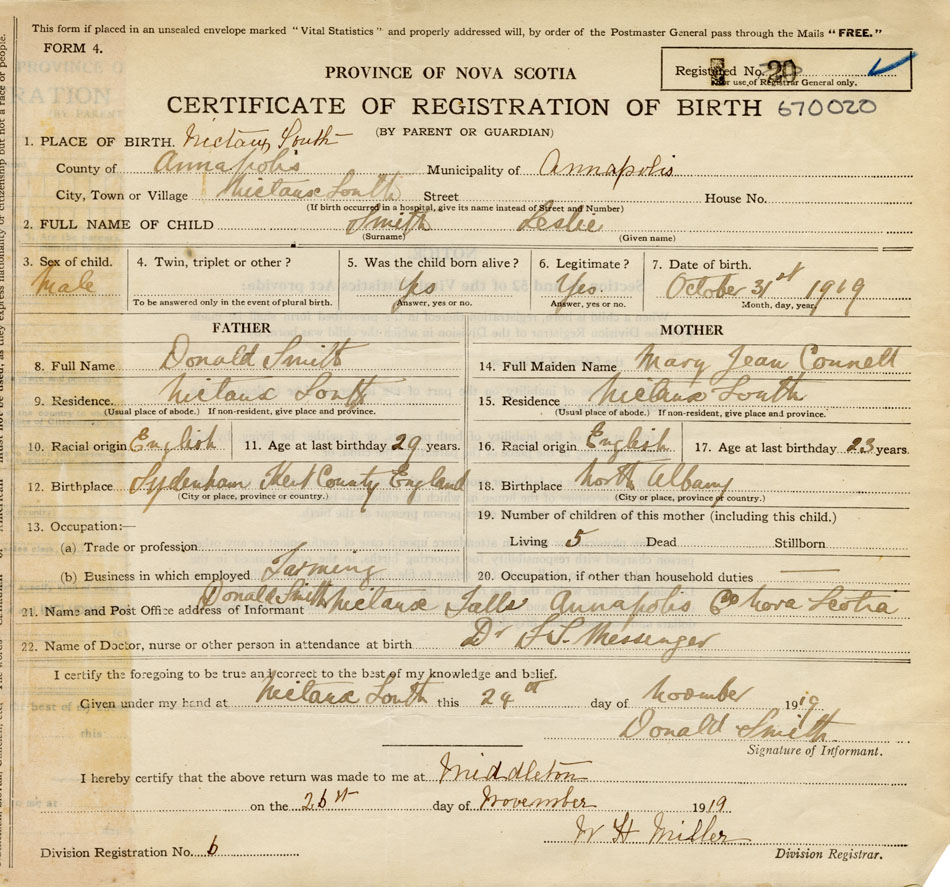 This form if placed in an unsealed envelope marked "Vital Statistics" and properly addressed will, by order of the Postmaster General pass through the Mails "FREE."
FORM 4.
PROVINCE OF NOVA SCOTIA
Registered No. 20
For use of Registrar General only.
CERTIFICATE OF REGISTRATION OF BIRTH 670020
(BY PARENT OR GUARDIAN)
1. PLACE OF BIRTH. Nictaux South
County of Annapolis Municipality of Annapolis
City, Town or Village Nictaux South Street House No.
(If birth occurred in a hospital, give its name instead of Street and Number)
2. FULL NAME OF CHILD Smith Leslie
(Surname) (Given name)
3. Sex of child. 4. Twin, triplet or other? 5. Was the child born alive? 6. Legitimate? 7. Date of birth.
Male Yes Yes. October 31st 1919
To be answered only in the event of plural birth. Answer, yes or no. Answer, yes or no. Month, day, year
FATHER MOTHER
8. Full Name Donald Smith 14. Full Maiden Name Mary Jean Connell
9. Residence. Nictaux South 15. Residence Nictaux South
(Usual place of abode.) If non-resident, give place and province. (Usual place of abode.) If non-resident, give place and province.
10. Racial origin English 11. Age at last birthday 29 years. 16. Racial origin English 17. Age at last birthday 23 years.
12. Birthplace Sydenham Kent County England 18. Birthplace North Albany
(City or place, province or country.) (City or place, province or country.)
13. Occupation:— 19. Number of children of this mother (including this child.)
(a) Trade or profession Living 5 Dead Stillborn
(b) Business in which employed Farming 20. Occupation, if other than household duties —
21. Name and Post Office address of Informant Donald Smith Nictaux Falls Annapolis Co Nova Scotia
22. Name of Doctor, nurse or other person in attendance at birth Dr S. S. Messenger
I certify the foregoing to be true and correct to the best of my knowledge and belief.
Given under my hand at Nictaux South this 24th day of November 1919
Donald Smith
Signature of Informant.
I hereby certify that the above return was made to me at Middleton
on the 26th day of November 1919
W H Miller
Division Registration No. 6 Division Registrar.